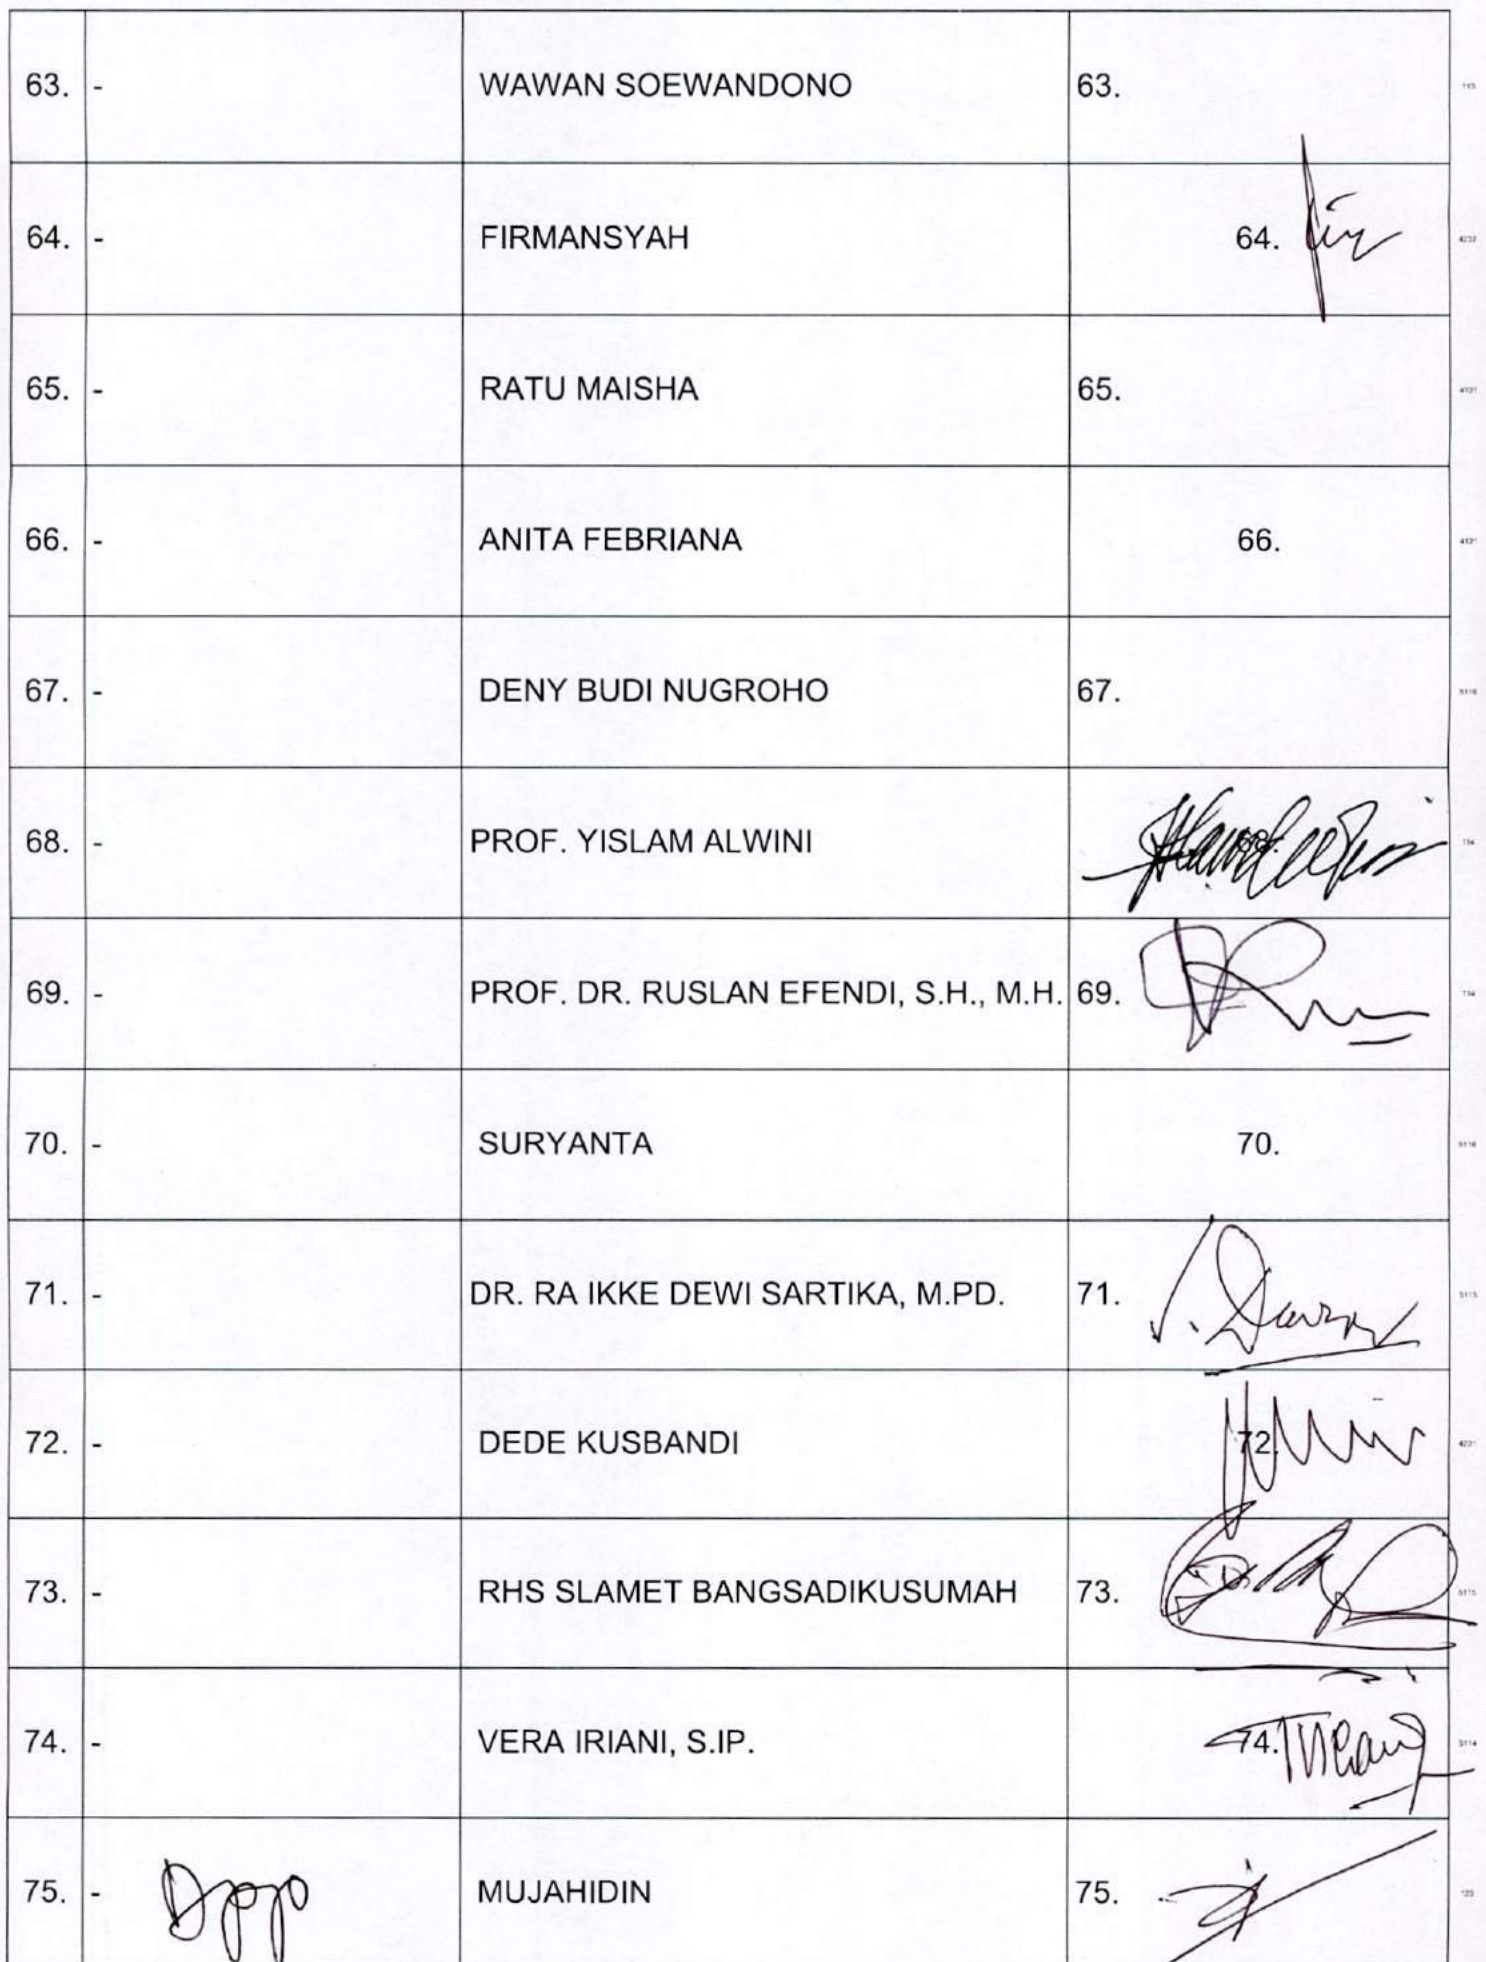 63. - WAWAN SOEWANDONO 63.
64. - FIRMANSYAH 64.
65. - RATU MAISHA 65.
66. - ANITA FEBRIANA 66.
67. - DENY BUDI NUGROHO 67.
68. - PROF. YISLAM ALWINI 68.
69. - PROF. DR. RUSLAN EFENDI, S.H., M.H. 69.
70. - SURYANTA 70.
71. - DR. RA IKKE DEWI SARTIKA, M.PD. 71.
72. - DEDE KUSBANDI 72.
73. - RHS SLAMET BANGSADIKUSUMAH 73.
74. - VERA IRIANI, S.IP. 74.
75. - MUJAHIDIN 75.